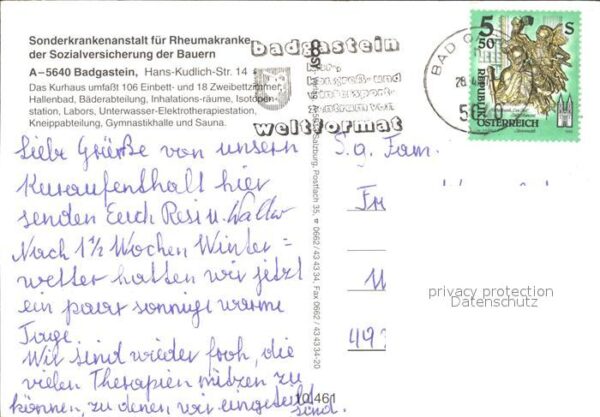 Sonderkrankenanstalt für Rheumakranke
der Sozialversicherung der Bauern
A–5640 Badgastein, Hans-Kudlich-Str. 14
Das Kurhaus umfaßt 106 Einbett- und 18 Zweibettzimmer,
Hallenbad, Bäderabteilung, Inhalations-räume, Isotopen-
station, Labors, Unterwasser-Elektrotherapiestation,
Kneippabteilung, Gymnastikhalle und Sauna.
badgastein
kur-
kongreß- und
wintersport von
weltformat
BAD
5640
5 50 S
REPUBLIK
ÖSTERREICH
Salzburg, Postfach 35, 0662/43 43 34, Fax 0662/43 43 34-20
10 461
Liebe Grüße von unserm
Kuraufenthalt hier
senden Euch Resi u. Walter
Nach 1½ Wochen Winter=
wetter hatten wir jetzt
ein paar sonnige warme
Tage.
Wir sind wieder froh, die
vielen Therapien nützen zu
können, zu denen wir eingeteilt
sind.
S.g. Fam.
privacy protection
Datenschutz